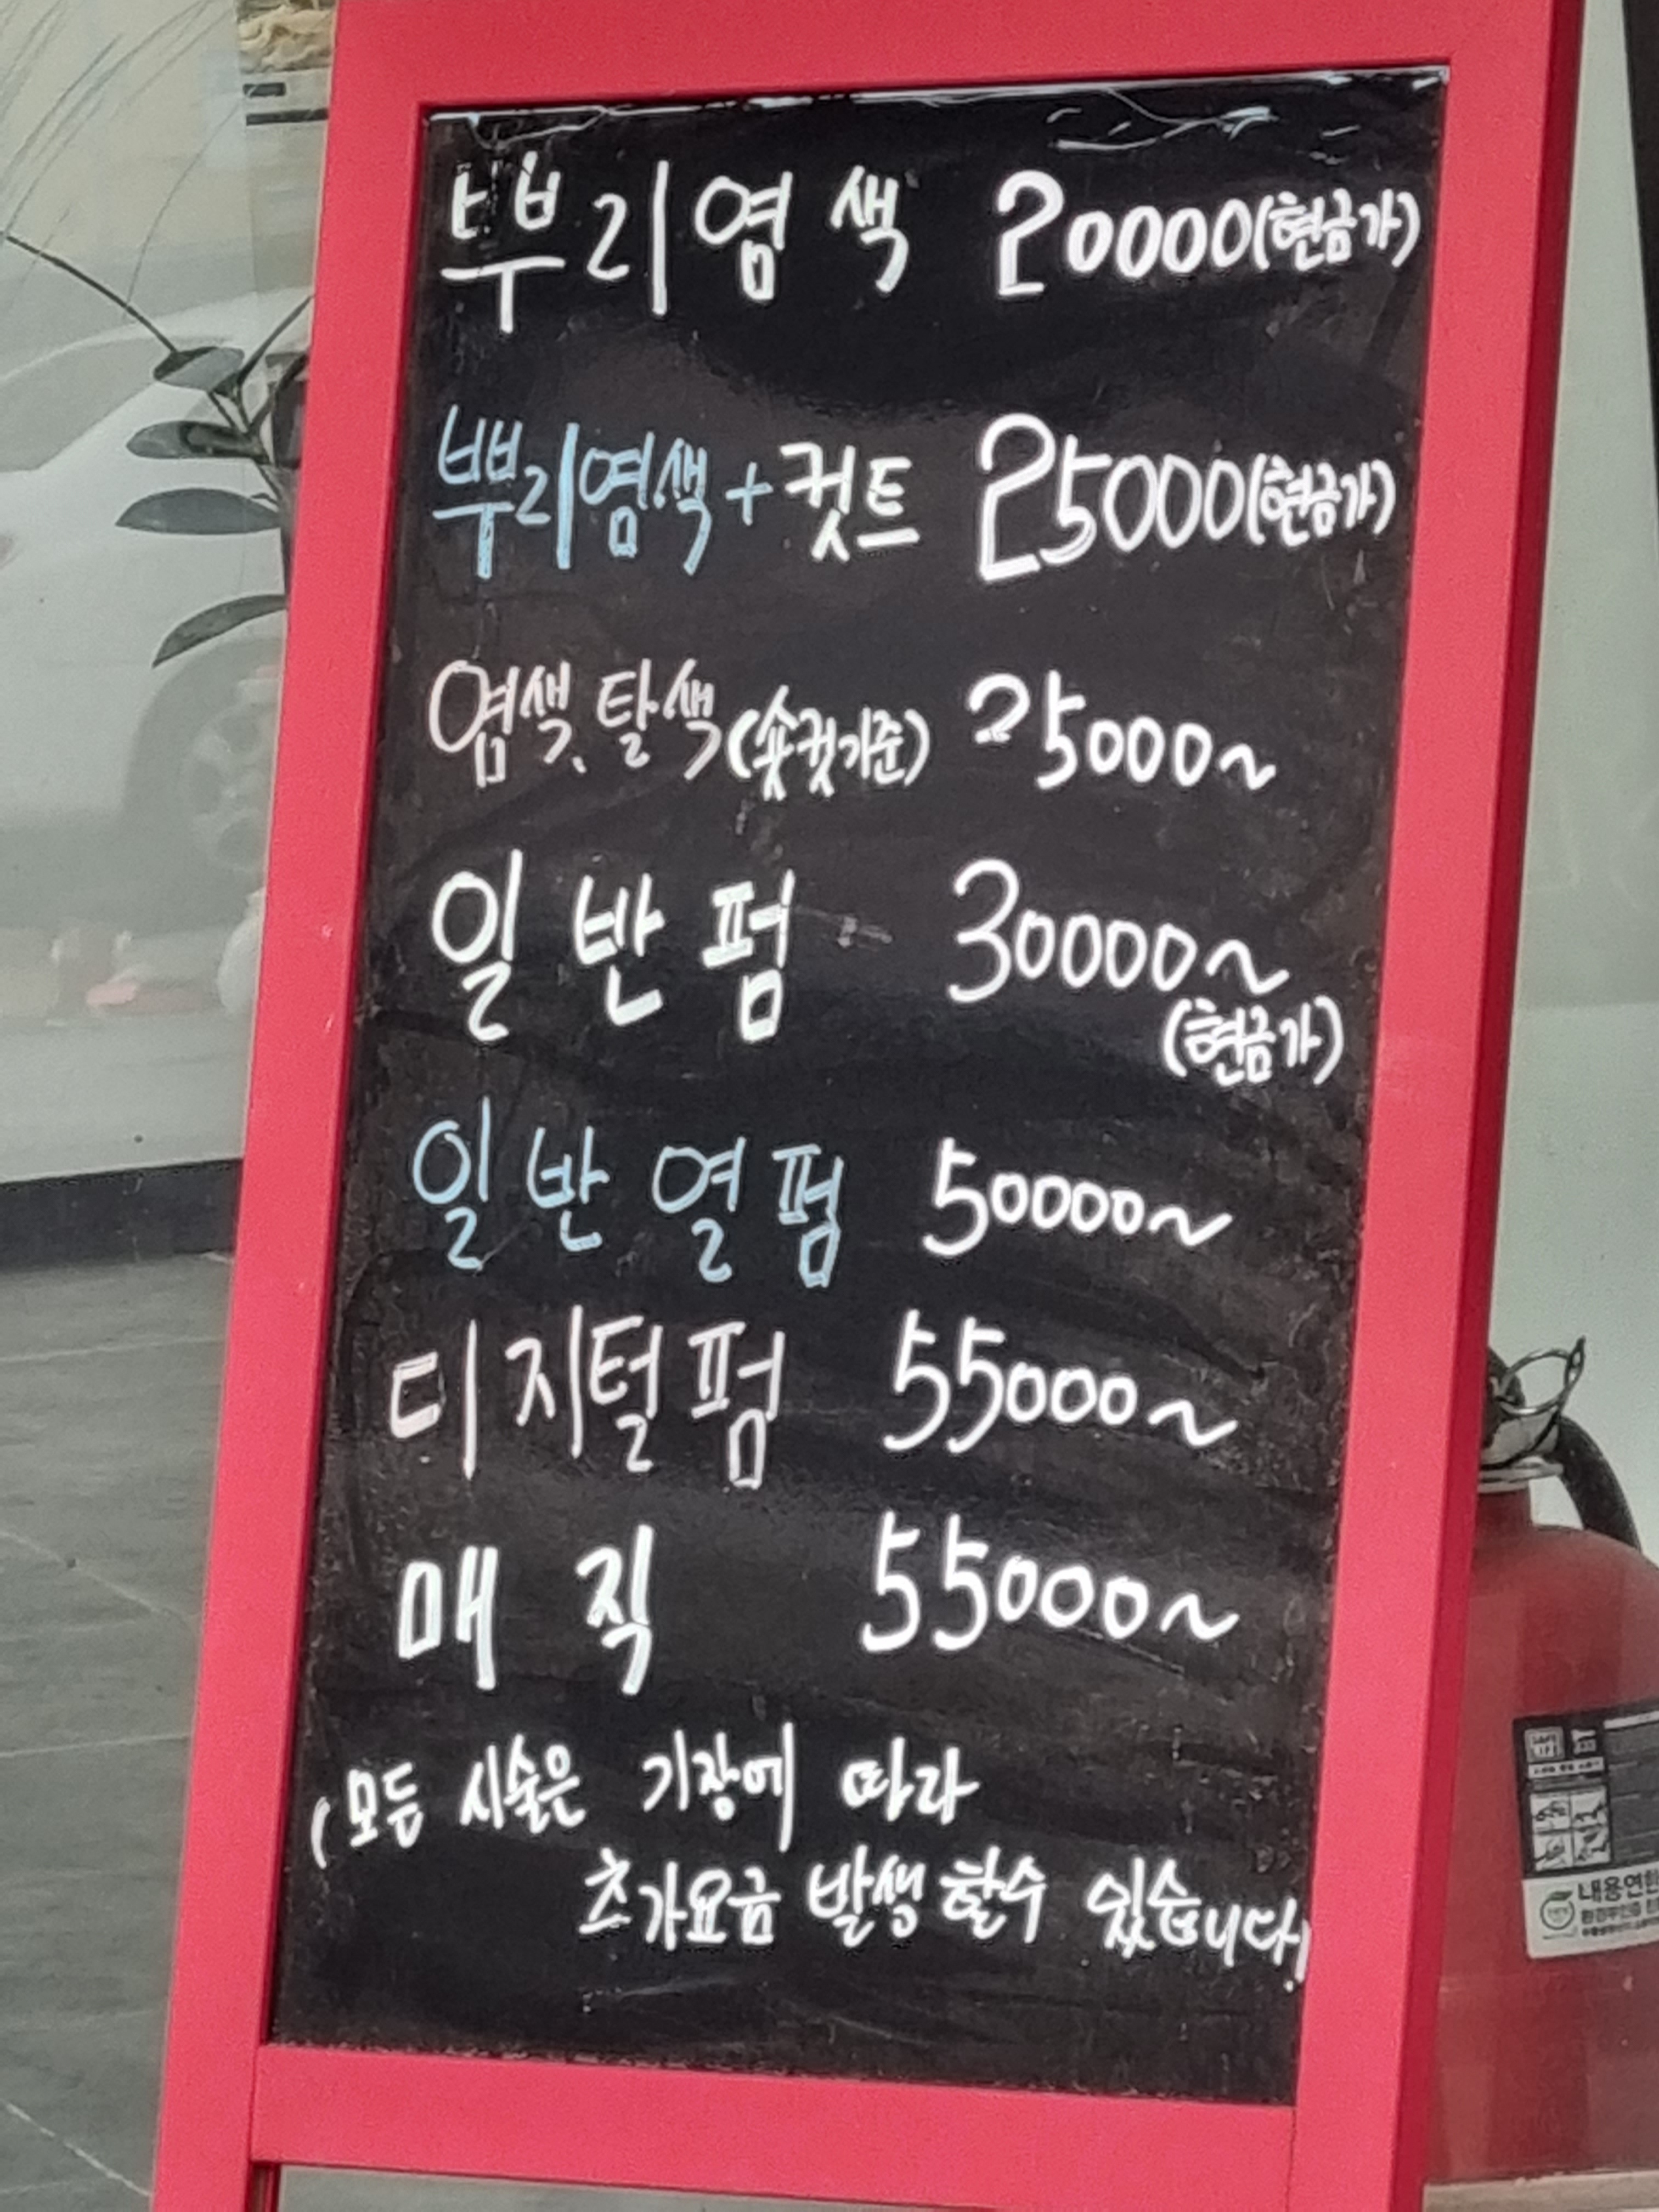 뿌리염색 20000(현금가)
뿌리염색+컷트 25000(현금가)
염색、탈색(숏컷기준) 25000~
일반펌 30000~
(현금가)
일반열펌 50000~
디지털펌 55000~
매직 55000~
(모듬 시술은 기장에 따라
초가요금 발생할수 있습니다)
내용연한